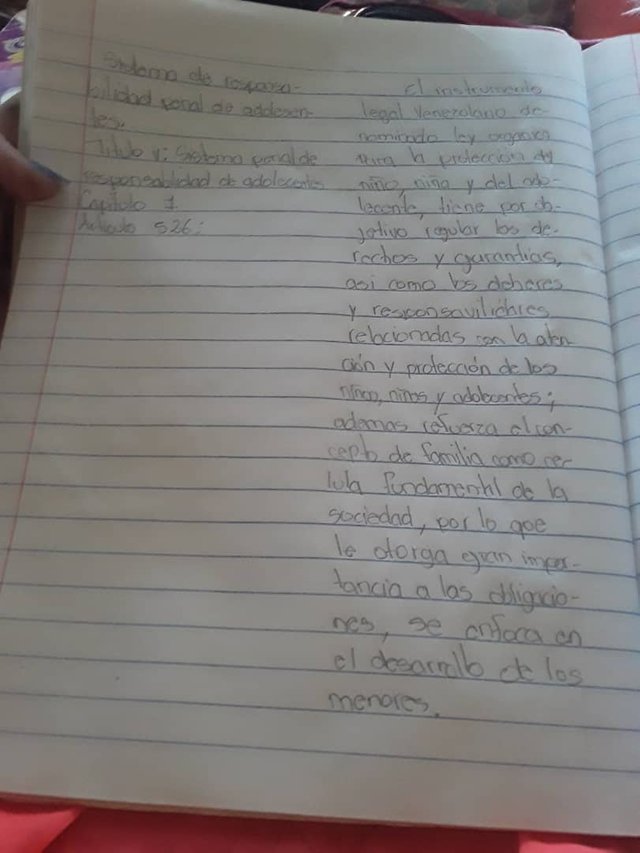 Sistema de responsa-
bilidad penal de adolesen-
tes.
Titulo V: Sistema penal de
responsabilidad de adolecentes
Capitulo 1
Articulo 526:
El instrumento
legal Venezolano de-
nominado ley organica
para la protección del
niño, niña y del ado-
lecente, tiene por ob-
jetivo regular los de-
rechos y garantias,
asi como los deberes
y responsavilidades
relacionadas con la aten-
ción y protección de los
niños, niñas y adolecentes;
ademas refuerza el con-
cepto de familia como ce-
lula fundamental de la
sociedad, por lo que
le otorga gran impor-
tancia a las obligacio-
nes, se enfoca en
el desarrollo de los
menores.